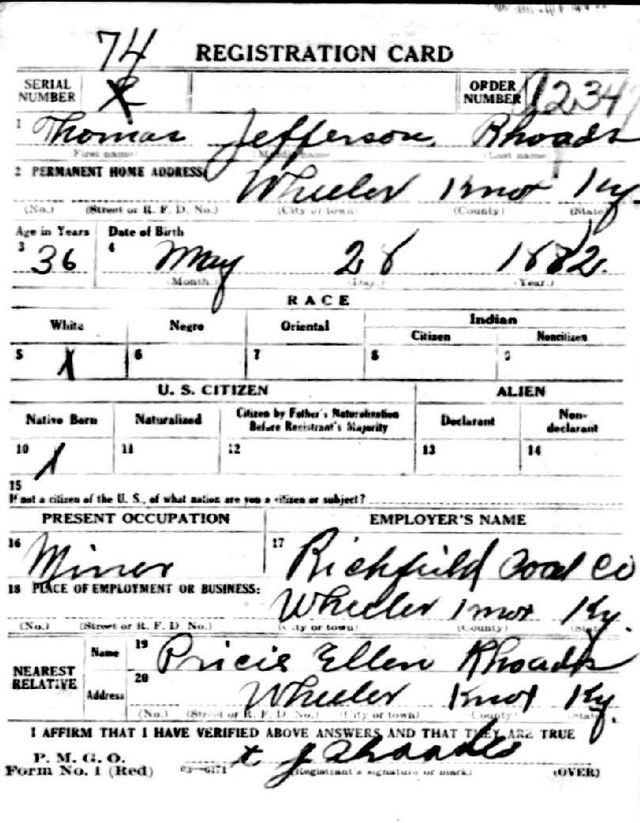 74
REGISTRATION CARD
SERIAL NUMBER
ORDER NUMBER 1234
1 Thomas Jefferson Rhoads
(First name) (Middle name) (Last name)
2 PERMANENT HOME ADDRESS: Wheeler Knox Ky.
(No.) (Street or R. F. D. No.) (City or town) (County) (State)
Age in Years Date of Birth
3 36 4 May 28 1882.
(Month.) (Day.) (Year.)
RACE
White Negro Oriental Indian
Citizen Noncitizen
5 X 6 7 8 9
U. S. CITIZEN ALIEN
Native Born Naturalized Citizen by Father's Naturalization Before Registrant's Majority Declarant Non-declarant
10 X 11 12 13 14
15
If not a citizen of the U. S., of what nation are you a citizen or subject?
PRESENT OCCUPATION EMPLOYER'S NAME
16 Miner 17 Richfield Coal Co
18 PLACE OF EMPLOYMENT OR BUSINESS: Wheeler Knox Ky.
(No.) (Street or R. F. D. No.) (City or town) (County) (State)
NEAREST RELATIVE
Name 19 Pricie Ellen Rhoads
Address 20 Wheeler Knox Ky.
(No.) (Street or R. F. D. No.) (City or town) (County) (State)
I AFFIRM THAT I HAVE VERIFIED ABOVE ANSWERS AND THAT THEY ARE TRUE
P. M. G. O.
Form No. 1 (Red) 03—6171 (Registrant's signature or mark) (OVER)